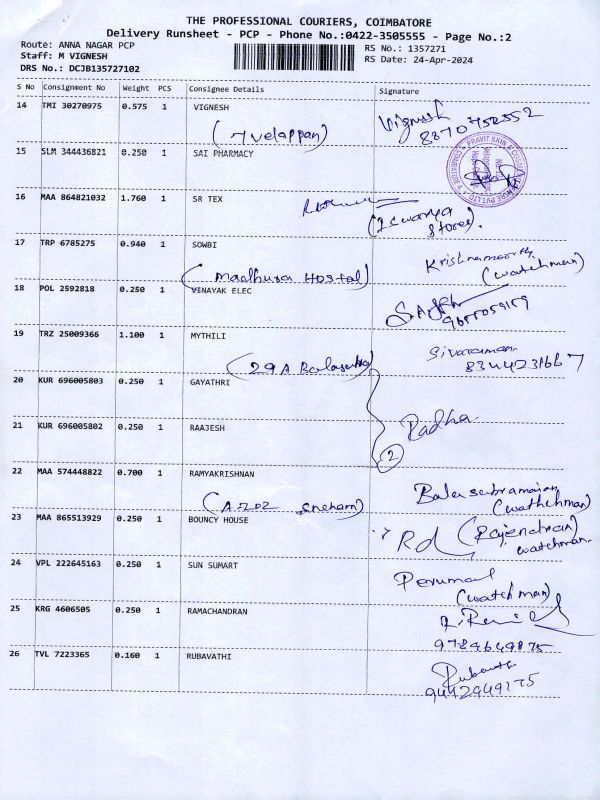 THE PROFESSIONAL COURIERS, COIMBATORE
Delivery Runsheet - PCP - Phone No.:0422-3505555 - Page No.:2
Route: ANNA NAGAR PCP
RS No.: 1357271
Staff: M VIGNESH
RS Date: 24-Apr-2024
DRS No.: DCJB135727102
S No Consignment No Weight PCS Consignee Details Signature
14 TMI 30270975 0.575 1 VIGNESH Vignesh
8870752552
(7 Velappan)
15 SLM 344436821 0.250 1 SAI PHARMACY
16 MAA 864821032 1.760 1 SR TEX
(Iswarya
Stores).
17 TRP 6785275 0.940 1 SOWBI Krishnamoorthy
(watchman)
(Maadhusa Hostal)
18 POL 2592818 0.250 1 VINAYAK ELEC
19 TRZ 25009366 1.100 1 MYTHILI Sivaraman
8344231667
(29 A
20 KUR 696005803 0.250 1 GAYATHRI
Radha
21 KUR 696005802 0.250 1 RAAJESH
2
22 MAA 574448822 0.700 1 RAMYAKRISHNAN Balasubramaian
(wathchman)
(A.202 Sneham)
23 MAA 865513929 0.250 1 BOUNCY HOUSE Rd (Rajendran)
watchman.
24 VPL 222645163 0.250 1 SUN SUMART Perumal
(watchman)
25 KRG 4606505 0.250 1 RAMACHANDRAN
9789649875
26 TVL 7223365 0.160 1 RUBAVATHI
9442949175